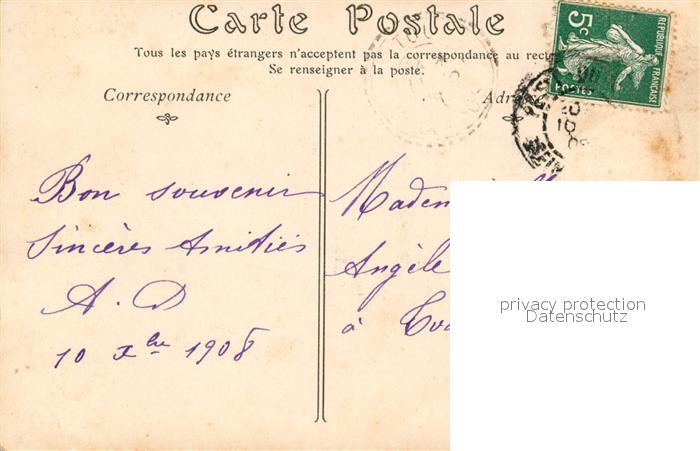 Carte Postale
Tous les pays étrangers n'acceptent pas la correspondance au
Se renseigner à la poste.
Correspondance
5c
REPUBLIQUE FRANÇAISE
POSTES
Bon souvenir
Sincères Amitiés
A. D
10 Xbre 1908
Angèle
à
privacy protection
Datenschutz